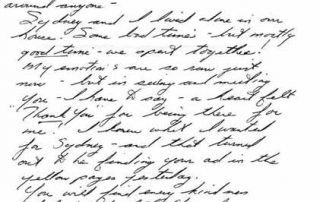 around anyone -
Sydney and I lived alone in our
house. Some bad times - but mostly
good time - we spent together!
My emotion's are so raw just
now - but in seeing and meeting
you - I have to say - a heart felt
"Thank you for being there for
me." I knew what I wanted
for Sydney - and that turned
out to be finding your ad in the
yellow pages yesterday.
You will find every kindness